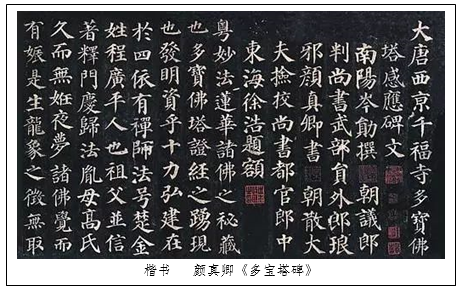 大唐西京千福寺多寶佛
塔感應碑文
南陽岑勛撰 朝議郎
判尚書武部員外郎琅
邪顏真卿書 朝散大
夫撿校尚書都官郎中
東海徐浩題額
粵妙法蓮華諸佛之秘藏
也多寶佛塔證經之踴現
也發明資乎十力弘建在
於四依有禪師法号楚金
姓程廣平人也祖父並信
著釋門慶歸法胤母高氏
久而無姙夜夢諸佛覺而
有娠是生龍象之徵無取
楷书 颜真卿《多宝塔碑》